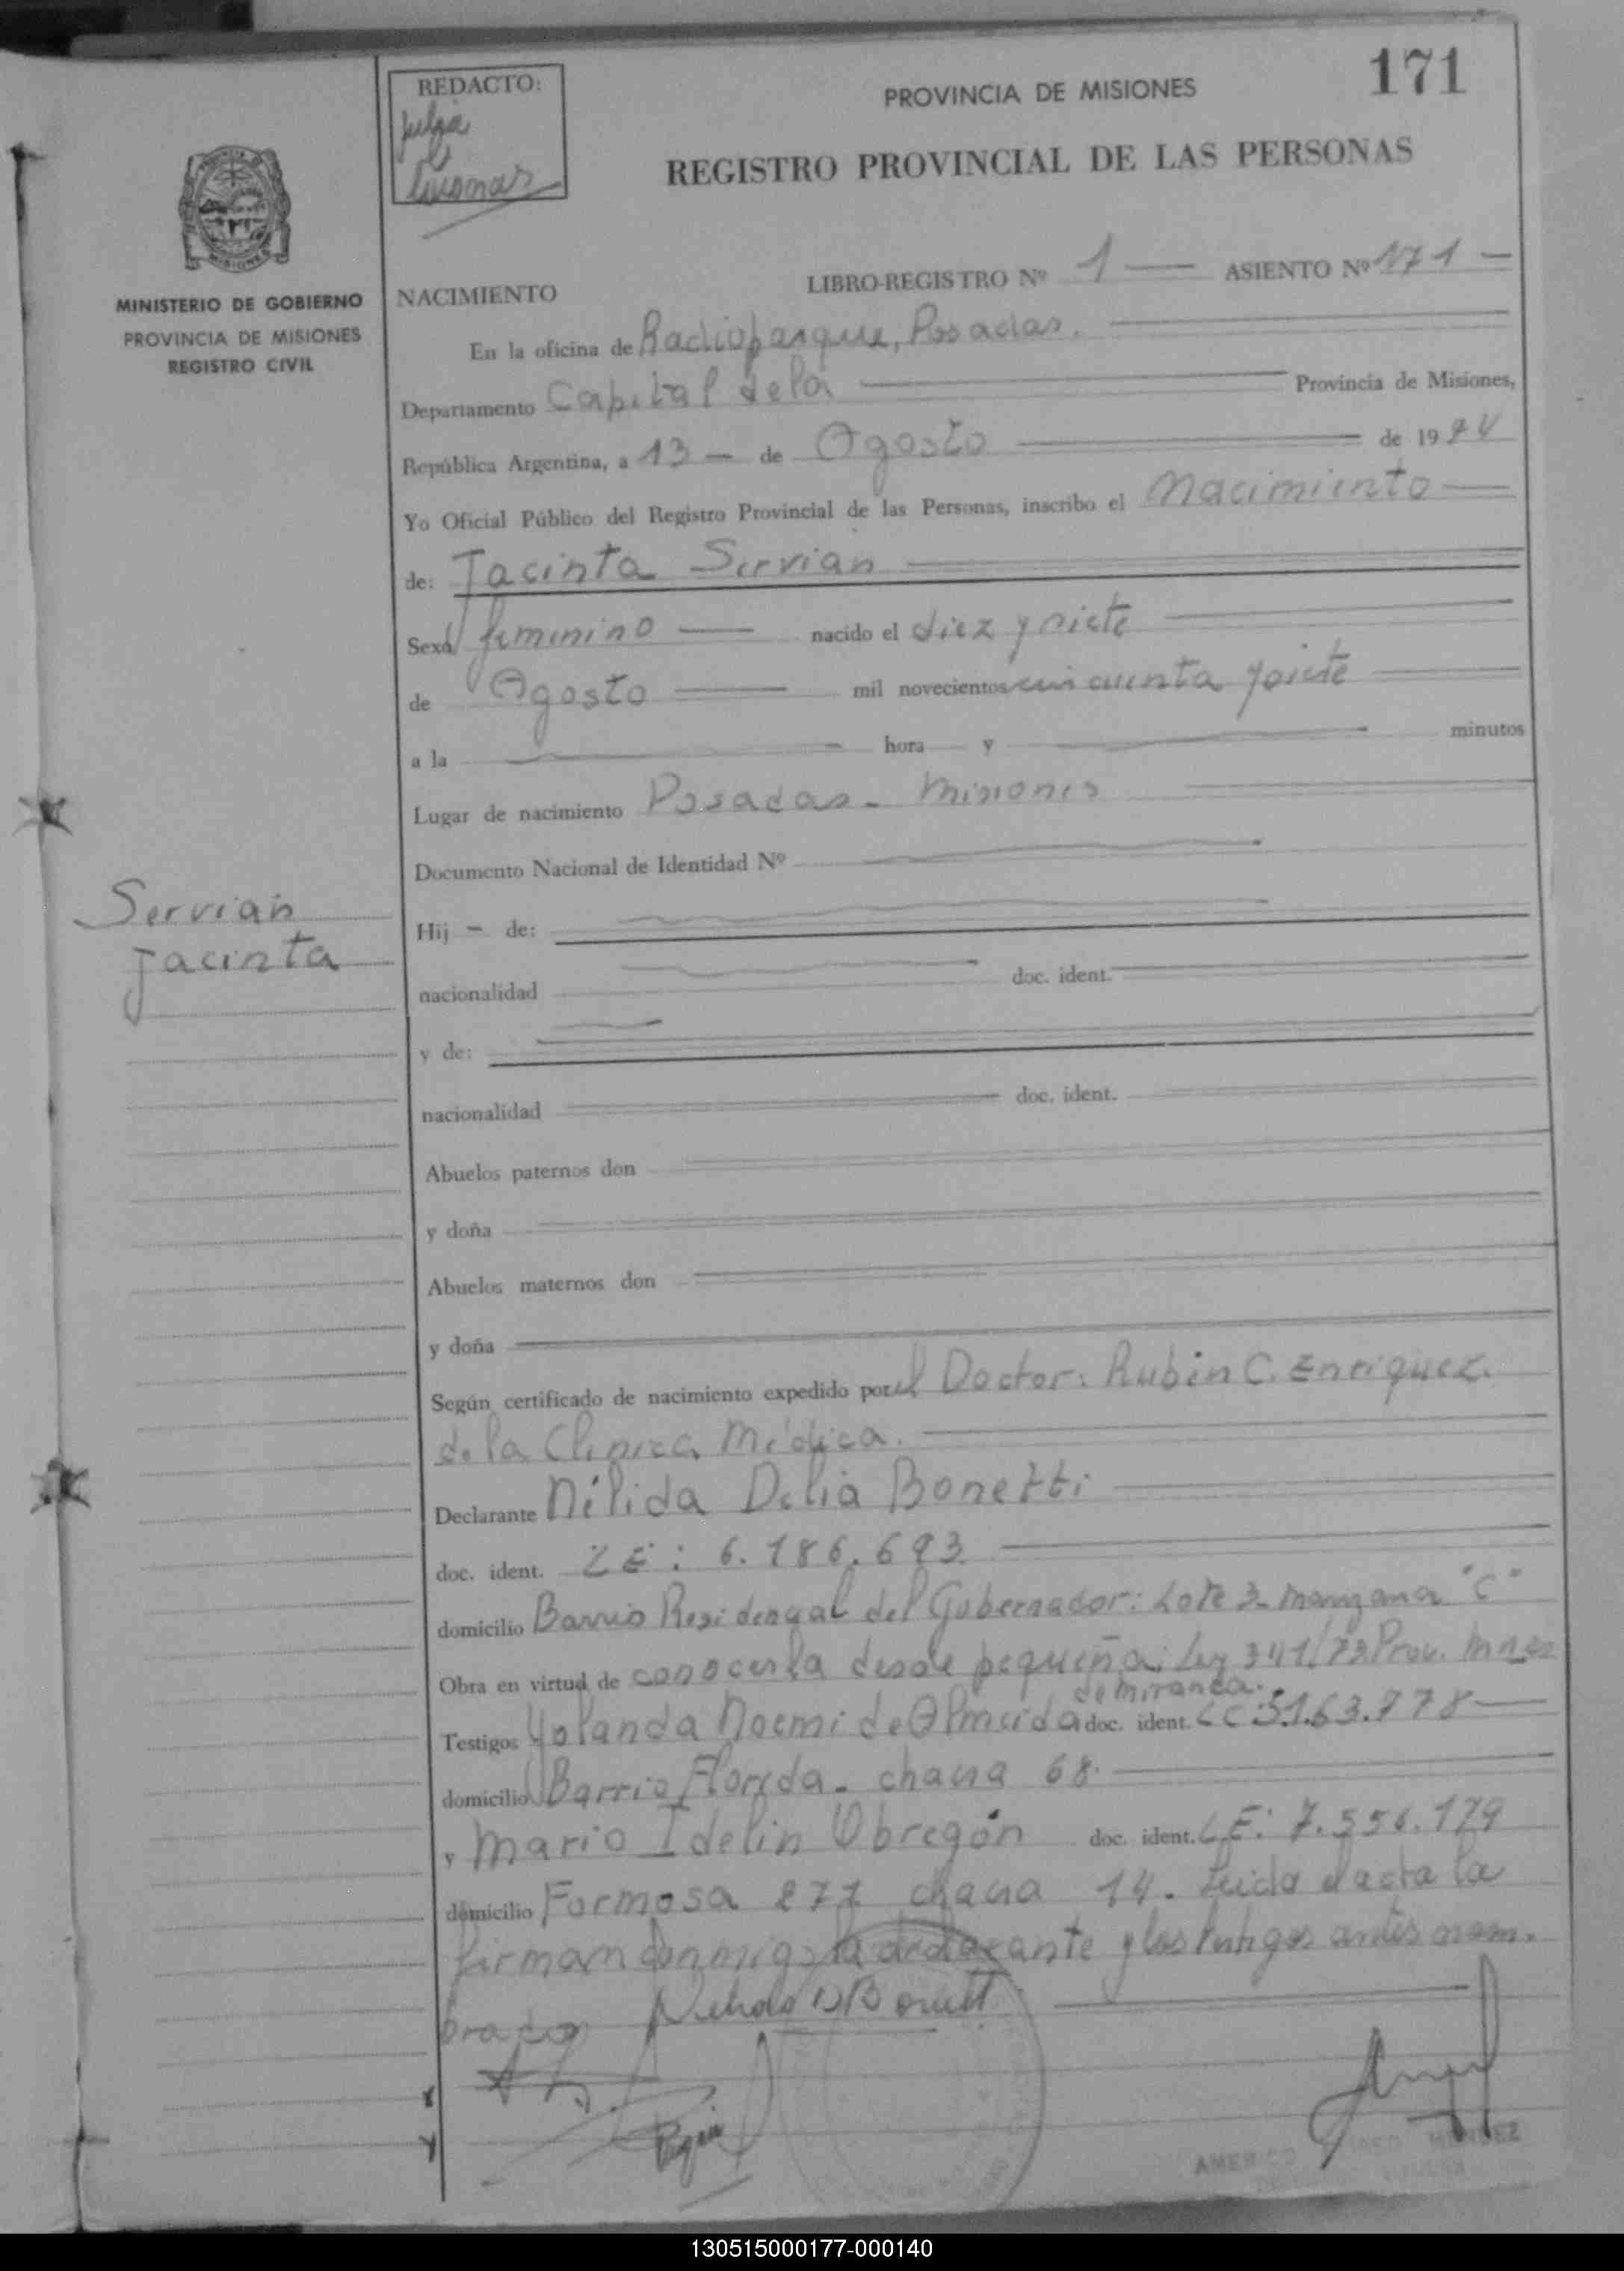 171
REDACTO:
PROVINCIA DE MISIONES
REGISTRO PROVINCIAL DE LAS PERSONAS
MISIONES
MINISTERIO DE GOBIERNO
PROVINCIA DE MISIONES
REGISTRO CIVIL
NACIMIENTO LIBRO-REGISTRO Nº 1 — ASIENTO Nº 171 —
En la oficina de Radioparque, Posadas.
Departamento Capital de la Provincia de Misiones,
República Argentina, a 13 — de Agosto de 1974
Yo Oficial Público del Registro Provincial de las Personas, inscribo el Nacimiento
de: Jacinta Servian
Sexo femenino nacido el diez y siete
de Agosto mil novecientos cincuenta y siete
a la hora y minutos
Lugar de nacimiento Posadas - Misiones
Documento Nacional de Identidad Nº
Servian
Jacinta
Hij — de:
nacionalidad doc. ident.
y de:
nacionalidad doc. ident.
Abuelos paternos don
y doña
Abuelos maternos don
y doña
Según certificado de nacimiento expedido por el Doctor: Rubén C. Enriquez.
de la Clinica Médica.
Declarante Nélida Delia Bonetti
doc. ident. LE: 6.186.693
domicilio Barrio Residencial del Gobernador: Lote 3- manzana "C"
Obra en virtud de conocerla desde pequeña; Ley 341/73 Prov. Mnes
de Miranda.
Testigos Yolanda Noemi de Almeida doc. ident. LC 3.163.778
domicilio Barrio Florida - chacra 68.
y Mario Idelin Obregón doc. ident. LE: 7.556.179
domicilio Formosa 277 chacra 14. Leida el acta la
firman conmigo la declarante y los testigos antes nom-
brados
AMERICO MENDEZ
130515000177-000140